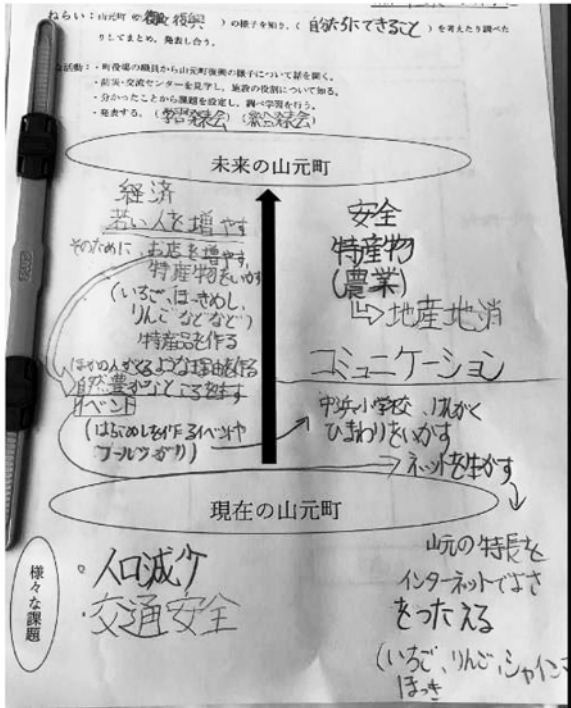 ねらい：山元町の復興）の様子を知り、（自分たちにできること）を考えたり調べた
りしてまとめ、発表し合う。
な活動：・町役場の職員から山元町復興の様子について話を聞く。
・防災・交流センターを見学し、施設の役割について知る。
・分かったことから課題を設定し、調べ学習を行う。
・発表する。（学習発表会）（総合発表会）
未来の山元町
経済
若い人を増やす
そのために、お店を増やす,
特産物をいかす
(いちご、ほっきめし、
りんごなどなど)
特産品を作る
ほかの人がくるような理由を作る
自然豊かなところをます
イベント
(はらこめしを作るイベントや
プールつがり)
安全
特産物
(農業)
⇨地産地消
コミュニケーション
中浜小学校、けんがく
ひまわりをいかす
→ネットを生かす
現在の山元町
山元の特長を
インターネットでよさ
をつたえる
(いちご、りんご、シャイン
ほっき
様々な課題
・人口減少
・交通安全